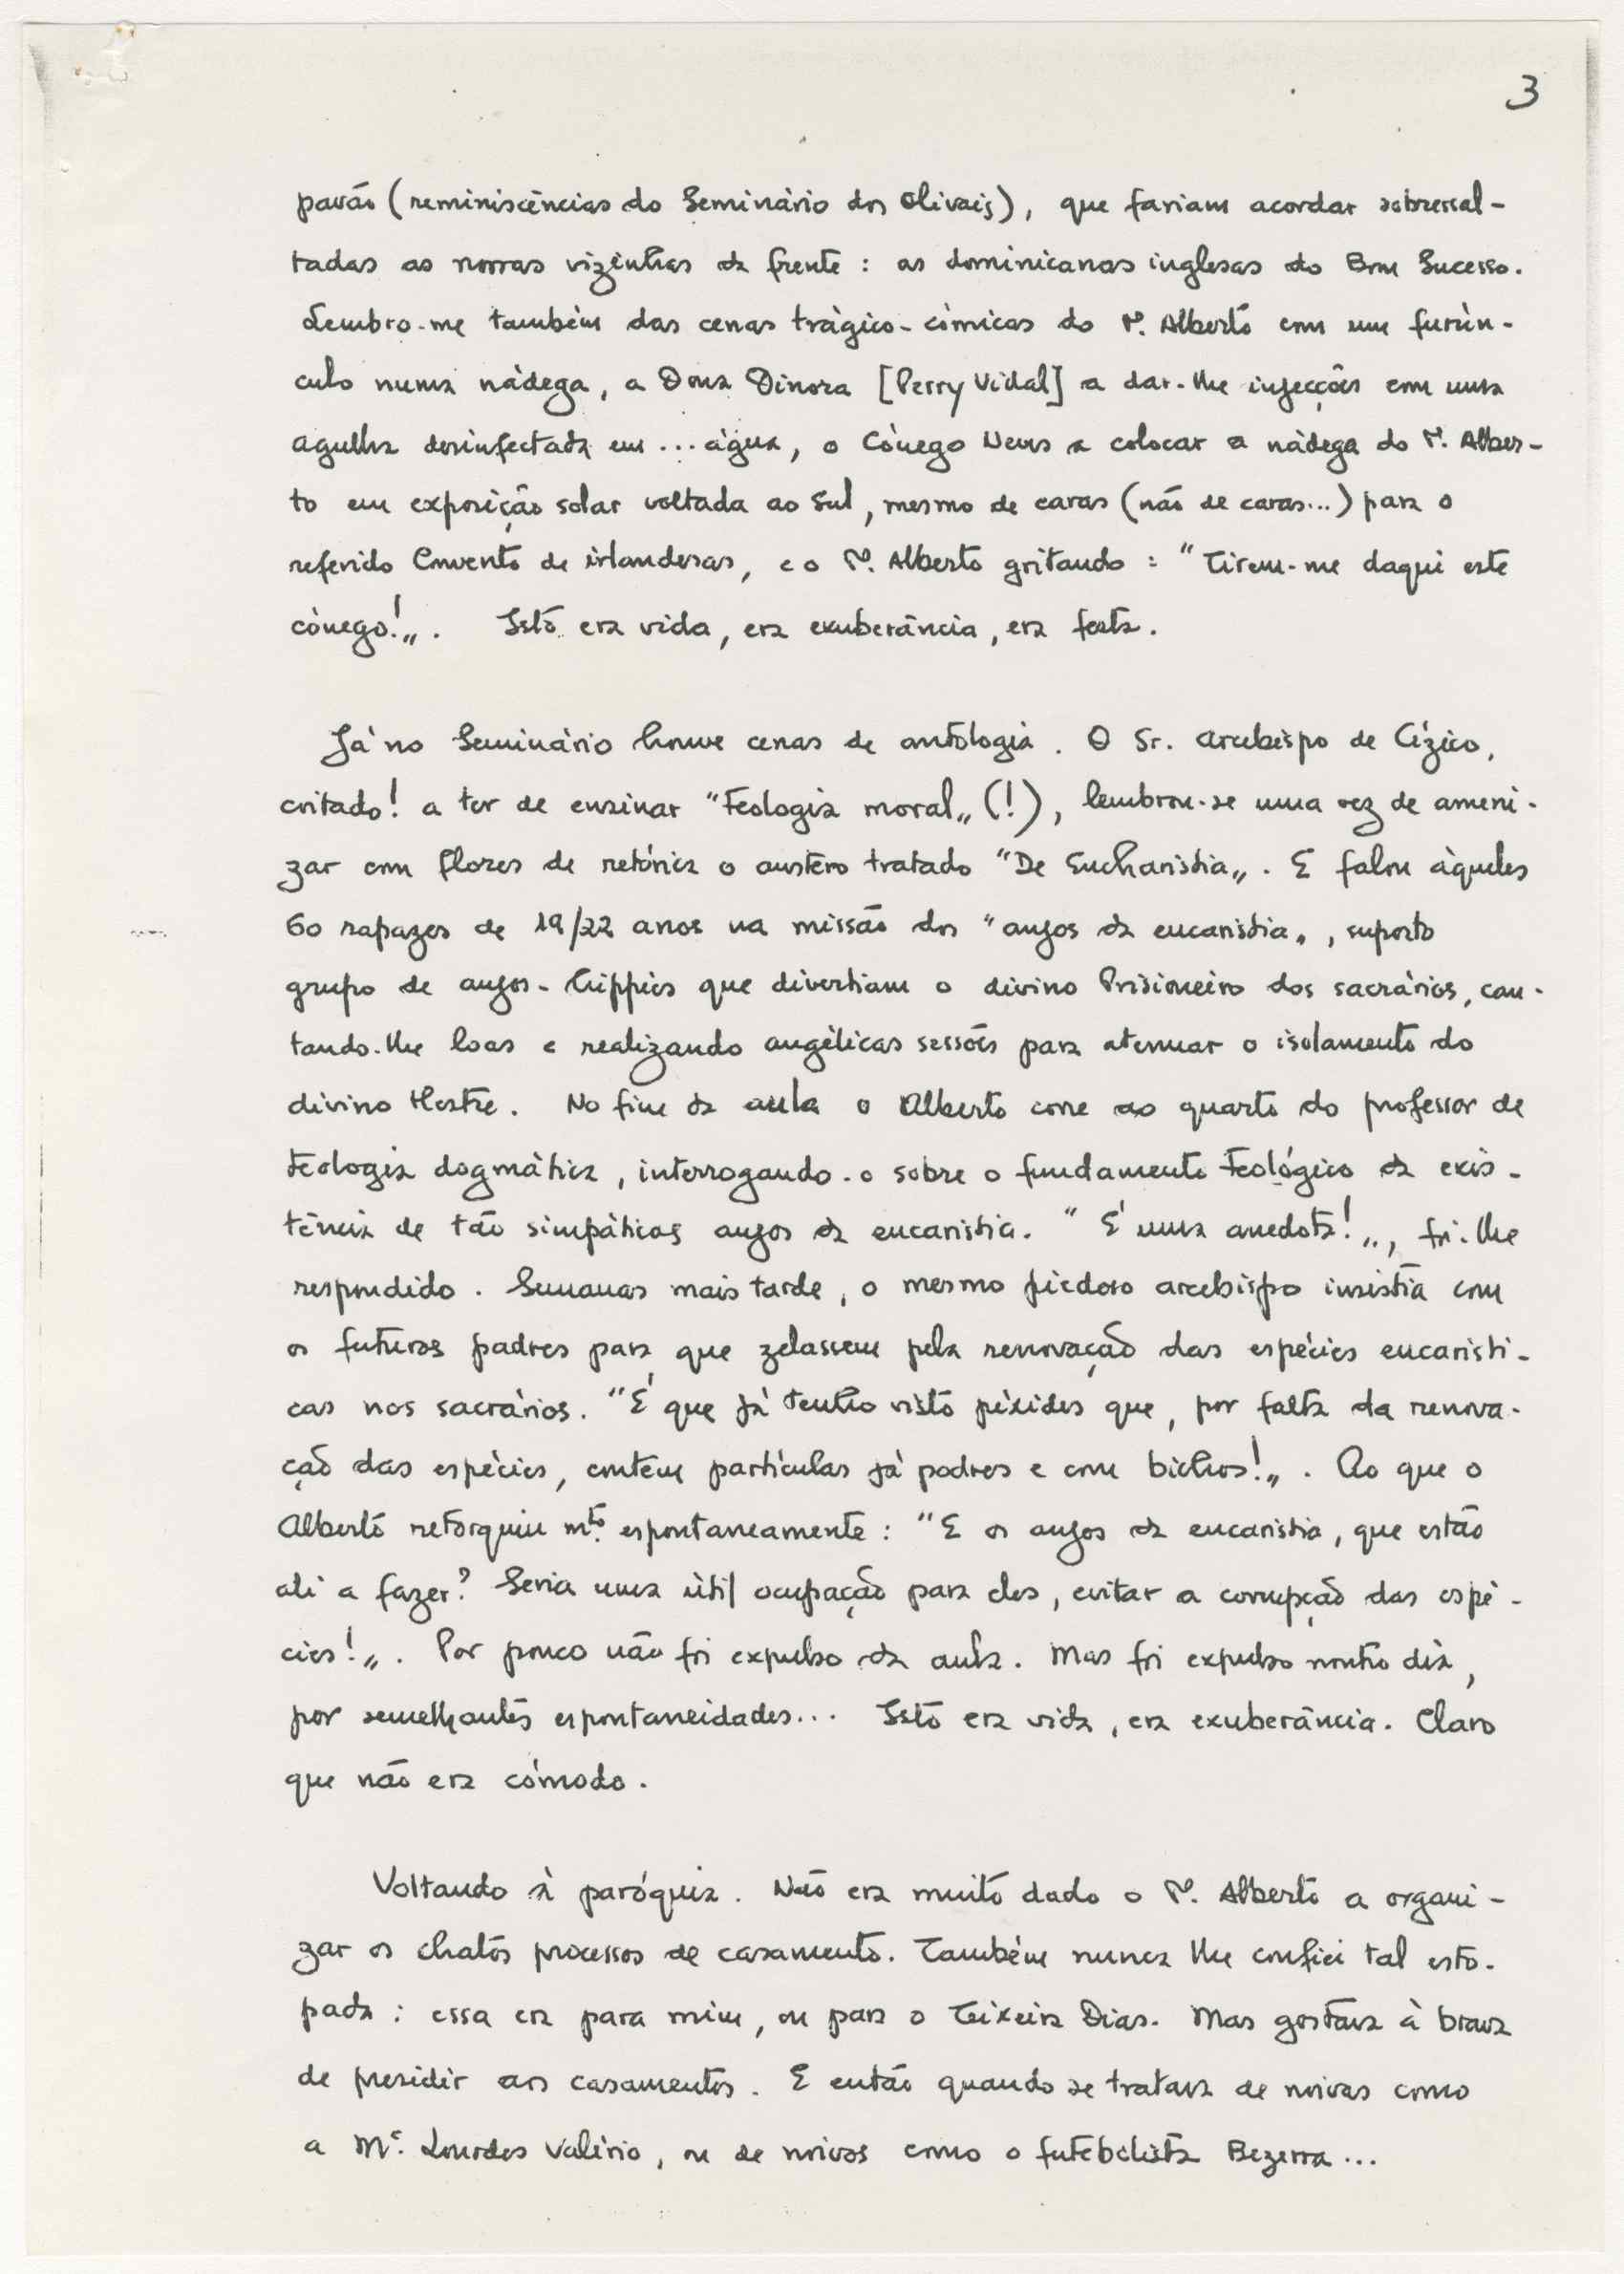 3
pavão (reminiscências do Seminário dos Olivais), que fariam acordar sobressal-
tadas as nossas vizinhas da frente : as dominicanas inglesas do Bom Sucesso.
Lembro-me também das cenas trágico-cómicas do P. Alberto com um furún-
culo numa nádega, a Dona Dinora [Perry Vidal] a dar-lhe injecções com uma
agulha desinfectada em ... água, o Cónego Neves a colocar a nádega do P. Alber-
to em exposição solar voltada ao Sul, mesmo de caras (não de caras...) para o
referido Convento de irlandesas, e o P. Alberto gritando : "Tirem-me daqui este
cónego!„. Isto era vida, era exuberância, era festa.
Já no Seminário houve cenas de antologia. O Sr. arcebispo de Cízico,
coitado! a ter de ensinar "Teologia moral„ (!), lembrou-se uma vez de ameni-
zar com flores de retórica o austero tratado "De Eucharistia„. E falou àqueles
60 rapazes de 19/22 anos na missão dos "anjos da eucaristia„, suposto
grupo de anjos-hippies que divertiam o divino Prisioneiro dos sacrários, can-
tando-lhe loas e realizando angélicas sessões para atenuar o isolamento do
divino Mestre. No fim da aula o Alberto corre ao quarto do professor de
teologia dogmática, interrogando-o sobre o fundamento teológico da exis-
tência de tão simpáticos anjos da eucaristia. "É uma anedota!„, foi-lhe
respondido. Semanas mais tarde, o mesmo piedoso arcebispo insistia com
os futuros padres para que zelassem pela renovação das espécies eucarísti-
cas nos sacrários. "É que já tenho visto píxides que, por falta da renova-
ção das espécies, contêm partículas já podres e com bichos!„. Ao que o
Alberto retorquiu mto. espontaneamente : "E os anjos da eucaristia, que estão
ali a fazer? Seria uma útil ocupação para eles, evitar a corrupção das espé-
cies!„. Por pouco não foi expulso da aula. Mas foi expulso noutro dia,
por semelhantes espontaneidades... Isto era vida, era exuberância. Claro
que não era cómodo.
Voltando à paróquia. Não era muito dado o P. Alberto a organi-
zar os chatos processos de casamento. Também nunca lhe confiei tal esto-
pada : essa era para mim, ou para o Teixeira Dias. Mas gostava à brava
de presidir aos casamentos. E então quando se tratava de noivas como
a Mª. Lourdes Valério, ou de noivos como o futebolista Bezerra...